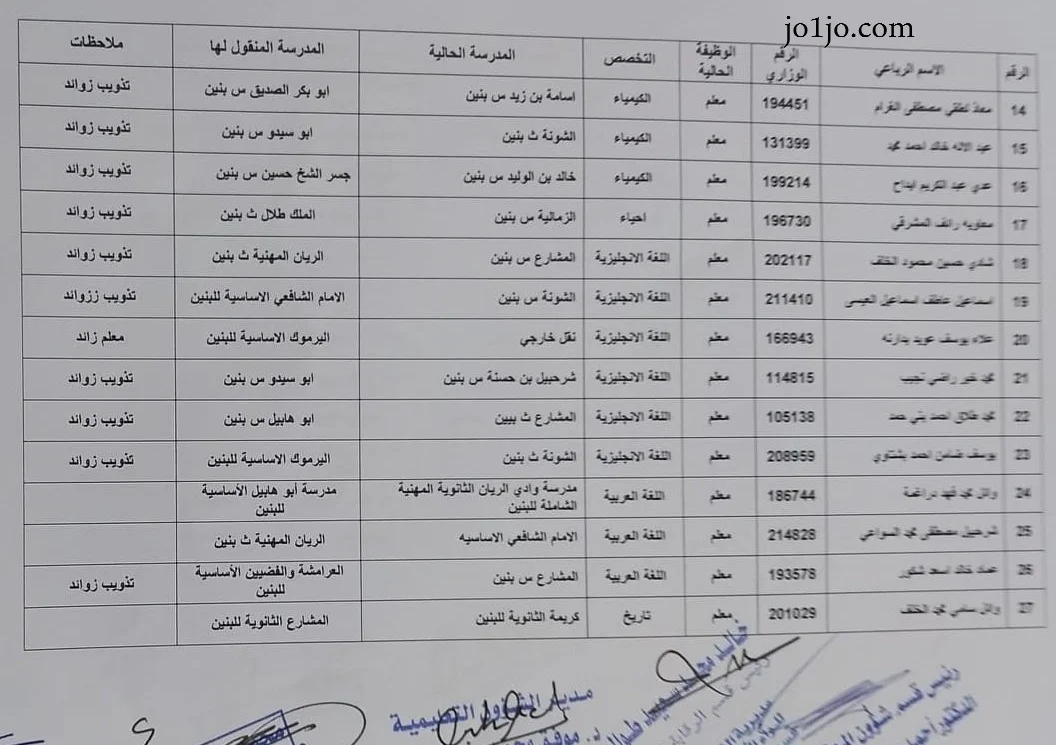 jo1jo.com
الرقم الاسم الرباعي الرقم الوزاري الوظيفة الحالية التخصص المدرسة الحالية المدرسة المنقول لها ملاحظات
14 معاذ لطفي مصطفى الغرام 194451 معلم الكيمياء اسامة بن زيد س بنين ابو بكر الصديق س بنين تذويب زوائد
15 عبد الاله خالد احمد محمد 131399 معلم الكيمياء الشونة ث بنين ابو سيدو س بنين تذويب زوائد
16 عدي عبد الكريم ابداح 199214 معلم الكيمياء خالد بن الوليد س بنين جسر الشيخ حسين س بنين تذويب زوائد
17 معاويه رائف المشرقي 196730 معلم احياء الزمالية س بنين الملك طلال ث بنين تذويب زوائد
18 شادي حسين محمود الخلف 202117 معلم اللغة الانجليزية المشارع س بنين الريان المهنية ث بنين تذويب زوائد
19 اسماعيل عاطف اسماعيل العيسى 211410 معلم اللغة الانجليزية الشونة س بنين الامام الشافعي الاساسية للبنين تذويب ززوائد
20 علاء يوسف عويد بدارنه 166943 معلم اللغة الانجليزية نقل خارجي اليرموك الاساسية للبنين معلم زائد
21 محمد خير راضي نجيب 114815 معلم اللغة الانجليزية شرحبيل بن حسنة س بنين ابو سيدو س بنين تذويب زوائد
22 محمد طلاق احمد بني حمد 105138 معلم اللغة الانجليزية المشارع ث بيين ابو هابيل س بنين تذويب زوائد
23 يوسف ضامن احمد بشتاوي 208959 معلم اللغة الانجليزية الشونة ث بنين اليرموك الاساسية للبنين تذويب زوائد
24 وائل محمد فهد دراغمة 186744 معلم اللغة العربية مدرسة وادي الريان الثانوية المهنية الشاملة للبنين مدرسة أبو هابيل الأساسية للبنين
25 شرحبيل مصطفى محمد السواعي 214828 معلم اللغة العربية الامام الشافعي الاساسيه الريان المهنية ث بنين
26 عماد خالد اسعد شكور 193578 معلم اللغة العربية المشارع س بنين العرامشة والفضيين الأساسية للبنين تذويب زوائد
27 وائل سامي محمد الخلف 201029 معلم تاريخ كريمة الثانوية للبنين المشارع الثانوية للبنين
رئيس قسم شؤون
مدير الشؤون التعليمية